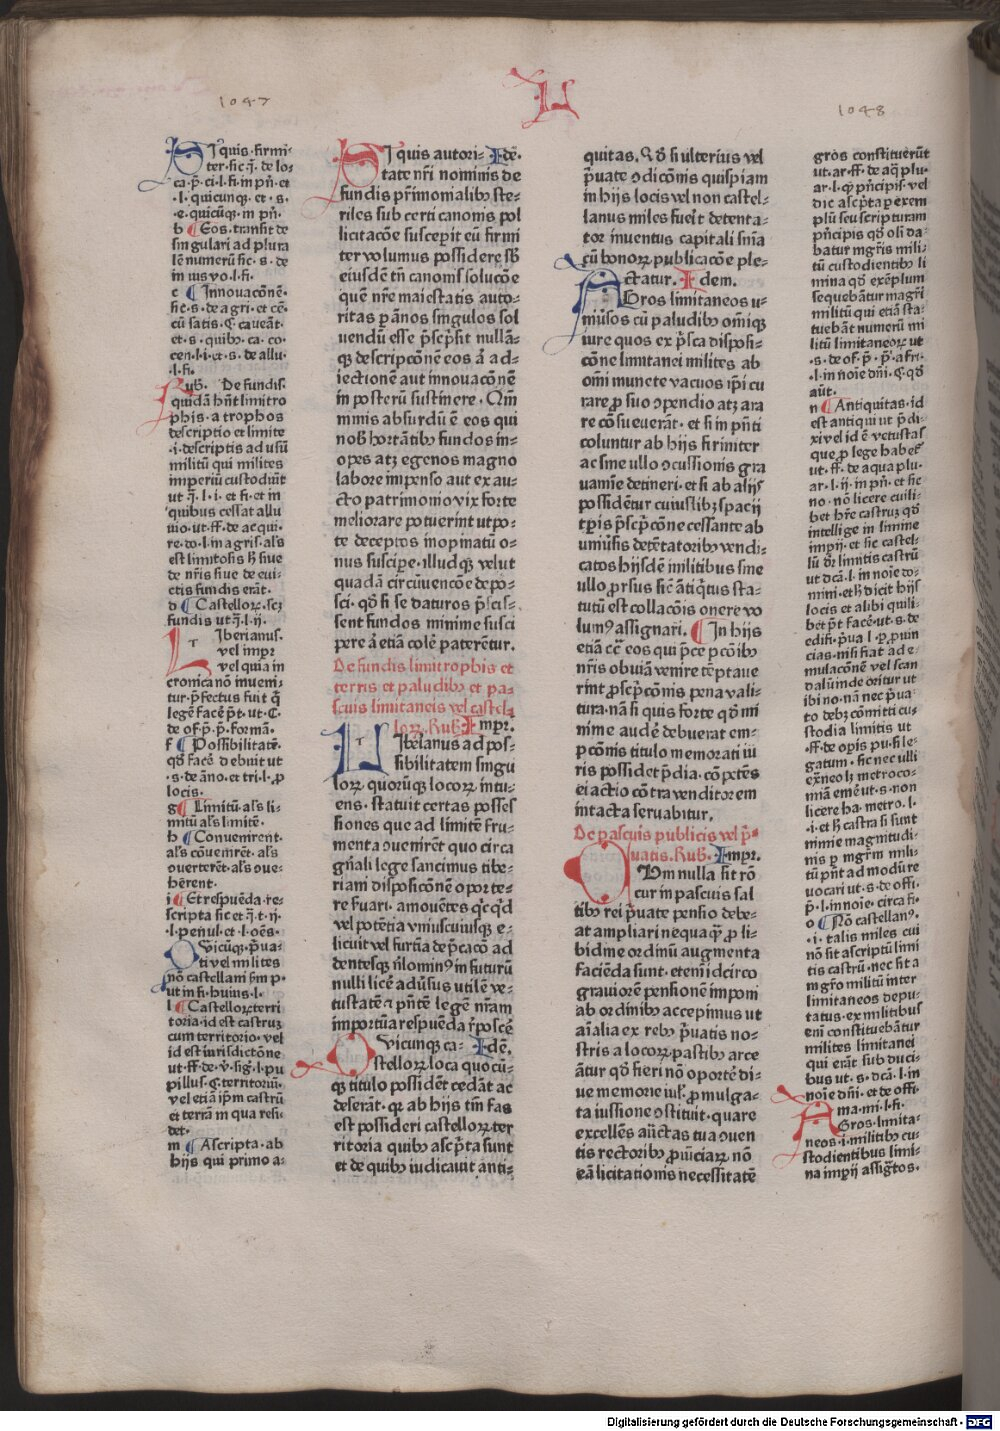 1047
L
1048
SI quis · firmi-
ter · sic q̄ · de lo-
ca · p̄ · ci · l · fi · in pn̄ · et
· l · quicunqꝫ · et · s ·
e · quicūqꝫ · in pn̄ ·
b ¶ Eos · transit de
singulari ad plura
lē numerū sic · s · de
in ius vo · l · fi ·
c ¶ Innouacōnē ·
sic · s · de agri · et cē ·
cū satis · C · caueāt ·
et · s · quibꝰ · ca · co-
cen · l · i · et · s · de allu ·
· l · fi ·
Rub̄ · De fundis ·
quidā hn̄t limitro
phis · a trophos
descriptio et limite
· i · descriptis ad usū
militū qui milites
imperiū custodiūt
ut q̄ · l · i · et fi · et in
quibus cessat allu
uio · ut · ff · de acqui ·
re · do · l · in agris · als
est limitosis h̄ siue
de nr̄is siue de eui-
ctis fundis erāt ·
d ¶ Castelloꝝ · scꝫ
fundis ut q̄ · l · ij ·
LIberianus ·
vel impr
vel quia in
cronica nō inueni-
tur · p̄fectus fuit q̄
legē facē p̄t · ut · C ·
de of · p̄ · p̄ · formā ·
f ¶ Possibilitatē ·
qd̄ facē debuit ut
· s · de āno · et tri · l · ꝓ
locis ·
g ¶ Limitū · als li-
mitū als limitē ·
h ¶ Conuenirent ·
als cōuenirēt · als
ouerterēt · als oue-
herent ·
i ¶ Et respuēda · re-
scripta sic et q̄ · t · ij ·
· l · penul · et · l · oēs ·
QVicūqꝫ · p̄ua-
ti vel milites
nō castellani ſm p ·
ut in fi · huius · l ·
l ¶ Castelloꝝ · terri
toria · id est castruꝫ
cum territorio · vel
id est iurisdictōne
ut · ff · de · v̄ · sig̅ · l · pu
pillus · C · territoriū ·
vel etiā ip̄m castrū
et terrā in qua resi-
det ·
m ¶ Ascripta · ab
hijs qui primo a-
SI quis autori- Idē ·
tate nr̄i nominis de
fundis pr̄imonialibꝰ ste-
riles sub certi canonis pol
licitacōe suscepit eū firmi
ter volumus possidere sb̄
eiusdē tn̄ canonis solucōe
quē nr̄e maiestatis auto-
ritas p ānos singulos sol
uendū esse p̄scp̄sit nullā-
qꝫ descripcōnē eos ꝛ̄ ad-
iectionē aut innouacōnē
in posterū sustinere · Nim
minis absurdū ē eos qui
nob̄ hortātibꝰ fundos in-
opes atꝫ egenos magno
labore impenso aut ex au-
cto patrimonio vix forte
meliorare potuerint utpo-
te deceptos inopinatū o-
nus suscipe · illudqꝫ velut
quadā circūuencōe depo-
sci · qd̄ si se daturos p̄scis-
sent fundos minime susci
pere ꝛ̄ etiā colē paterētur ·
De fundis limitrophis et
terris et paludibꝰ et pa-
scuis limitaneis vel castel-
loꝝ · Rub̄ · Impr ·
LIbelanus ad pos-
sibilitatem singu
loꝝ quoriūqꝫ locoꝝ intu-
ens · statuit certas posses
siones que ad limitē fru-
menta ouenirēt quo circa
gn̄ali lege sancimus tibe-
riani disposicōne oporte-
re suari · amouētes qͥcqͥd
vel potētia vniuscuiusqꝫ e-
licuit vel furtīa dep̄cacō ad
dentesqꝫ n̄lominꝰ in futurū
nulli licē aduīsus utilē ve-
tustatē ꞇ pn̄tē legē nr̄am
importūa respuēda r̄poscē
QVicunqꝫ ca- Idē ·
stelloꝝ loca quocū-
qꝫ titulo possidēt cedāt ac
deserāt · qꝛ ab hijs tm̄ fas
est possideri castelloꝝ ter
ritoria quibꝰ asc̄pta sunt
et de quibꝰ iudicauit anti-
quitas · Qd̄ si ulterius vel
p̄uate ꝯdicōnis quispiam
in hijs locis vel non castel-
lanus miles fueit detenta-
tor inuentus capitali sn̄ia
cū bonoꝝ publicacōe ple-
ctatur · Idem ·
AGros limitaneos u-
niūsos cū paludibꝰ om̄iqꝫ
iure quos ex p̄sca disposi-
cōne limitanei milites ab
om̄i munere vacuos ip̄i cu
rare ꝓ suo ꝯpendio atꝫ ara
re cōsueuerāt · et si in pn̄ti
coluntur ab hijs firmiter
ac sine ullo ꝯcussionis gra
uamīe detineri · et si ab alijs
possidētur cuiuslibꝫ spacij
tp̄is p̄scp̄cōne cessante ab
uniūsis detētatoribꝰ vendi-
catos hijsdē militibus sine
ullo ꝓrsus sic̄ ātiqͥtus sta-
tutū est collacōis onere vo
lumꝰ assignari · ¶ In hijs
etiā cc̄ eos qui p̄ce p cōibꝰ
nr̄is obuiā venire tēptaue
rīt ꝓscp̄cōnis pena vali-
tura · nā si quis forte qd̄ mi
nime audē debuerat em-
pcōnis titulo memorati iu
ris possidet p̄dia · cōpetēs
ei actio cōtra venditorem
intacta seruabitur ·
De pascuis publicis vel p̄-
uatis · Rub̄ · Impr ·
QVm nulla sit rō
cur in pascuis sal
tibꝰ rei p̄uate pensio debe-
at ampliari nequaqͣ ꝓ li-
bidine ordinū augmenta
faciēda sunt · etenī idcirco
grauiorē pensionē imponi
ab ordinibꝰ accepimus ut
aīalia ex rebꝰ p̄uatis no-
stris a locoꝝ pastibꝰ arce
ātur qd̄ fieri nō oportē di-
ue memorie iul · ꝓmulga-
ta iussione ꝯstituit · quare
excellēs auctas tua ꝯuen
tis rectoribꝰ ꝓuīciaꝝ nō
eā licitationis necessitatē
gros constituerūt
ut · ar · ff · de aq̄ plu ·
ar · l · qꝫ pn̄cipis · vel
dic ascp̄ta p exem
plū seu scripturam
pn̄cipis qd̄ oli da-
batur mgr̄is mili-
tū custodientibꝰ li
mina qd̄ exēplum
sequebātur magr̄i
militū qui etiā sta-
tuebāt numerū mi
litū limitaneoꝝ ut
· s · de of · p̄ · p̄ · afri ·
· l · in noīe dn̄i · C · qd̄
aūt ·
n ¶ Antiquitas · id
est antiqui ut p̄di-
xi vel id ē vetustas
que ꝓ lege habet ·
ut · ff · de aqua plu ·
ar · l · ij · in pn̄ · et sic
no · nō licere cuili-
bet hr̄e castruꝫ qd̄
intellige in limine
imp̄ij · et sic castel-
lū dr̄ limitis castrū
ut dcā · l · in noīe do-
mini · et h̄ dicit hijs
locis et alibi quili-
bet p̄t facē · ut · s · de
edifi · p̄ua · l · ꝓ · ꝓuin
cias · nisi fiat ad e-
mulacōnē vel scan
dalū inde oritur ut
ibi no · nā nec p̄ua-
to debꝫ cōmitti cu-
stodia limitis ut
· ff · de opis pu · si le-
gatum · sic nec ulli
exn̄eo lꝫ metroco-
miā emē ut · s · non
licere ha · metro · l ·
· i · et h̄ castra si sunt
nimie magnitudi-
nis ꝓ mgr̄m mili-
tū pn̄t ad modū re
uocari ut · s · de offi ·
p̄ · l · in noīe · circa fi ·
o ¶ Nō castellanꝰ ·
· i · talis miles cui
nō sit ascriptū limi
tis castrū · nec sit a
mgr̄o militū inter
limitaneos depu-
tatus · ex militibus
enī constituebātur
milites limitanei
qui erāt sub duci-
bus ut · s · dcā · l · in
noīe dn̄i · et de offi
ma · mi · l · fi ·
AGros · limita-
neos · i · militibꝰ cu-
stodientibus limi-
na imp̄ij assig̅tos ·
Digitalisierung gefördert durch die Deutsche Forschungsgemeinschaft - DFG